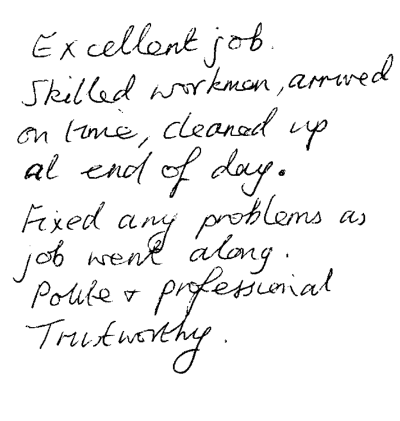 Excellent job.
Skilled workmen, arrived
on time, cleaned up
at end of day.
Fixed any problems as
job went along.
Polite + professional
Trustworthy.